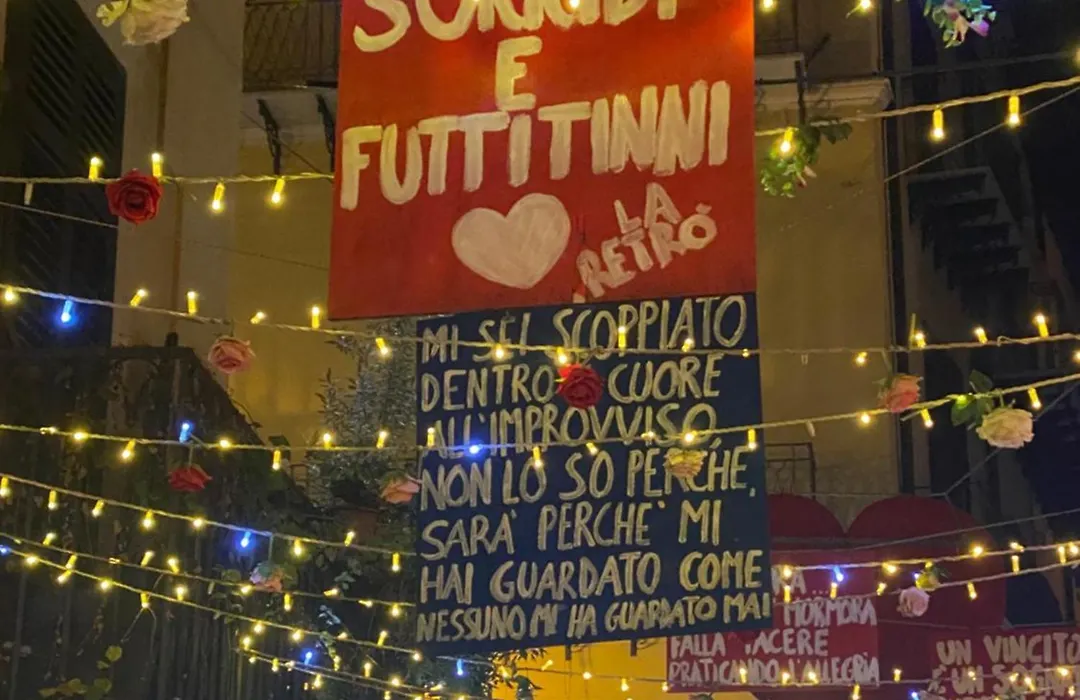 SORRIDI
E
FUTTITINNI
LA
RETRÒ
MI SEI SCOPPIATO
DENTRO CUORE
ALL'IMPROVVISO,
NON LO SO PERCHE,
SARA' PERCHE' MI
HAI GUARDATO COME
NESSUNO MI HA GUARDATO MAI
MORMORA
FALLA TACERE
PRATICANDO L'ALLEGRIA
UN VINCITO
È UN SOGNA